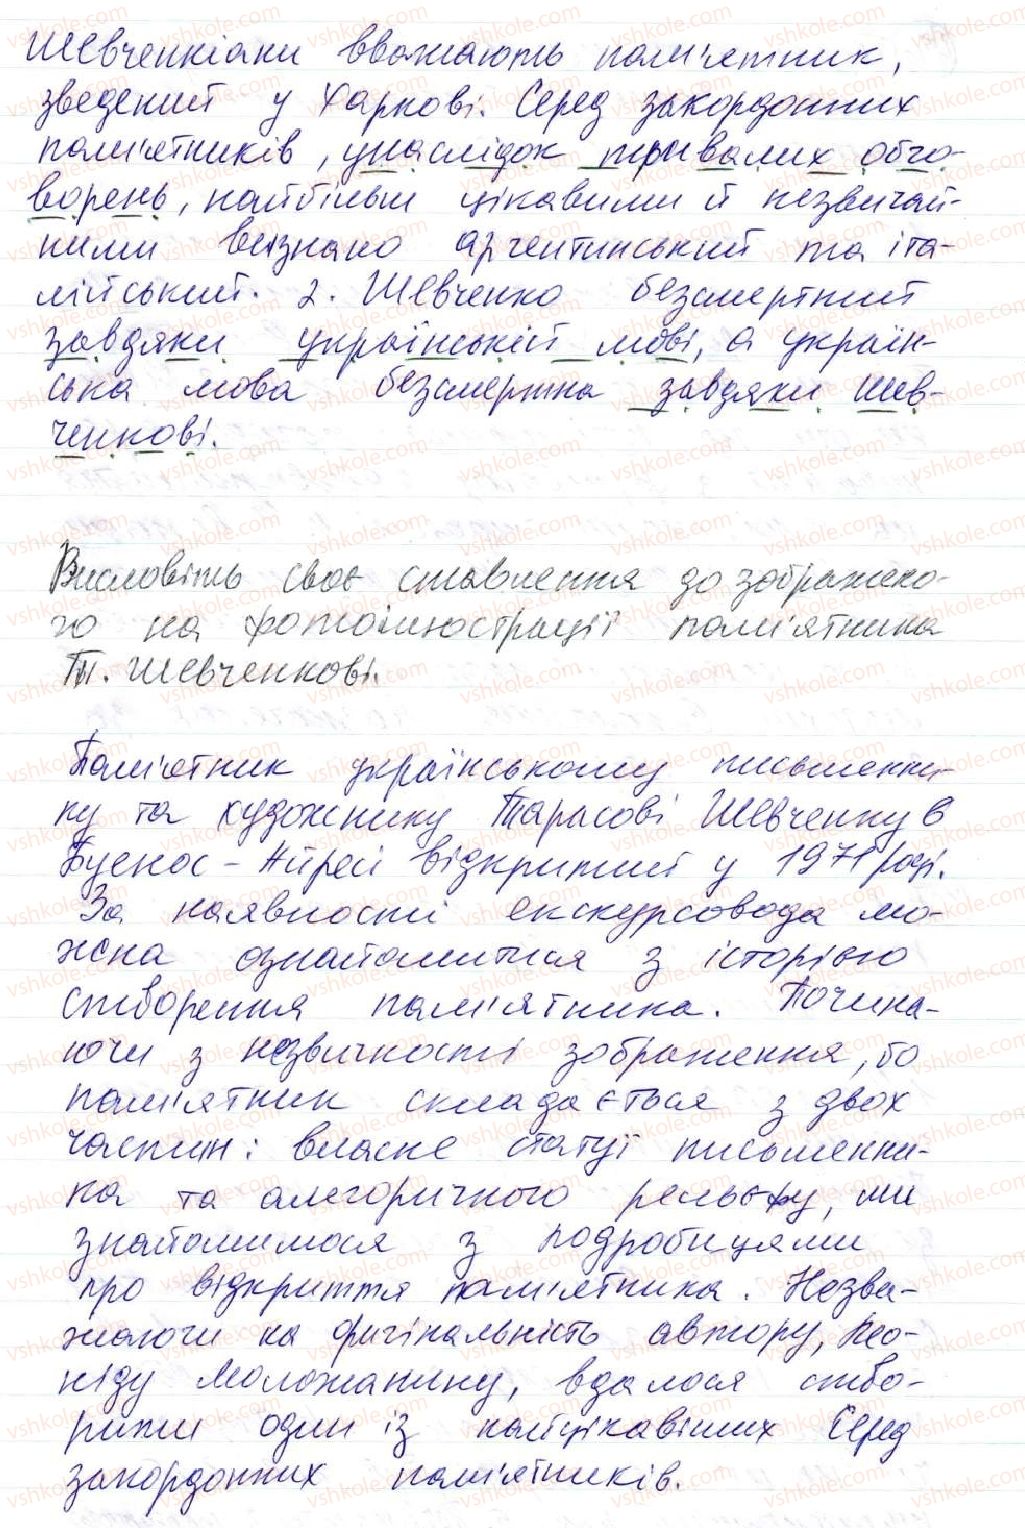 Шевченкіани вважають пам'ятник,
зведений у Харкові. Серед закордонних
пам'ятників, унаслідок тривалих обго-
ворень, найбільш цікавими й незвичай-
ними визнано аргентинський та іта-
лійський. 2. Шевченко безсмертний
завдяки українській мові, а україн-
ська мова безсмертна завдяки Шев-
ченкові.
Висловіть своє ставлення до зображено-
го на фотоілюстрації пам'ятника
Т. Шевченкові.
Пам'ятник українському письменни-
ку та художнику Тарасові Шевченку в
Буенос-Айресі відкритий у 1971 році.
За наявності екскурсовода мо-
жна ознайомитися з історією
створення пам'ятника. Почина-
ючи з незвичності зображення, бо
пам'ятник складається з двох
частин: власне статуї письменни-
ка та алегоричного рельєфу, ми
знайомимося з подробицями
про відкриття пам'ятника. Незва-
жаючи на оригінальність автору, Лео-
ніду Моложанину, вдалося ство-
рити один із найцікавіших серед
закордонних пам'ятників.